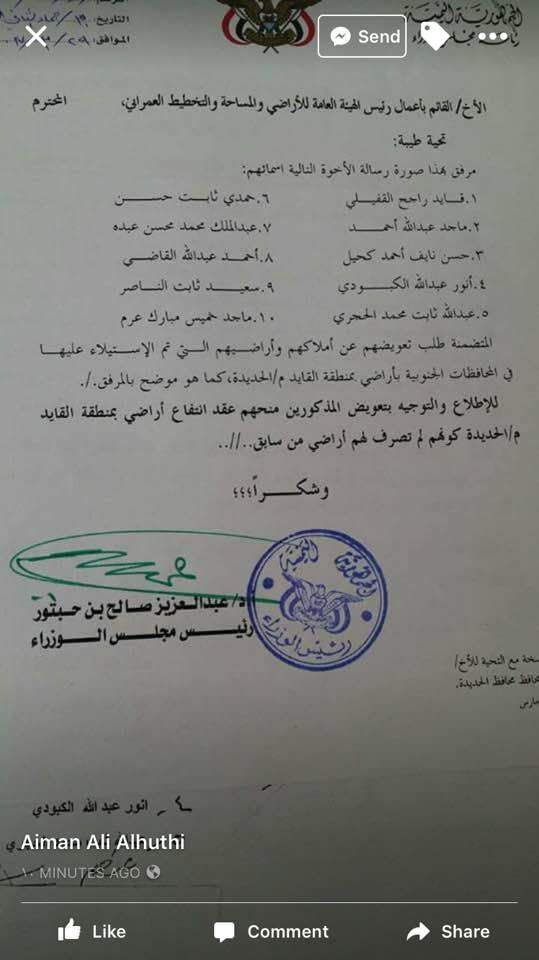 الجمهورية اليمنية
رئاسة مجلس الوزراء
التاريخ:
الموافق:
Send
الأخ/ القائم بأعمال رئيس الهيئة العامة للأراضي والمساحة والتخطيط العمراني، المحترم
تحية طيبة:
مرفق بهذا صورة رسالة الأخوة التالية اسمائهم:
١. قايد راجح القفيلي
٦. حمدي ثابت حسن
٢. ماجد عبدالله أحمد
٧. عبدالملك محمد محسن عبده
٣. حسن نايف أحمد كحيل
٨. أحمد عبدالله القاضي
٤. أنور عبدالله الكبودي
٩. سعيد ثابت الناصر
٥. عبدالله ثابت محمد الحجري
١٠. ماجد خميس مبارك عرم
المتضمنة طلب تعويضهم عن أملاكهم وأراضيهم التي تم الإستيلاء عليها
في المحافظات الجنوبية بأراضي بمنطقة القايد م/الحديدة، كما هو موضح بالمرفق./.
للإطلاع والتوجيه بتعويض المذكورين منحهم عقد انتفاع أراضي بمنطقة القايد
م/الحديدة كونهم لم تصرف لهم أراضي من سابق..//..
وشكراً؛؛؛
الجمهورية اليمنية
رئيس الوزراء
أ.د/ عبدالعزيز صالح بن حبتور
رئيس مجلس الوزراء
سخة مع التحية للأخ/
محافظ محافظ الحديدة.
مارس
٤ـ انور عبد الله الكبودي
Aiman Ali Alhuthi
١٠ MINUTES AGO
Like
Comment
Share